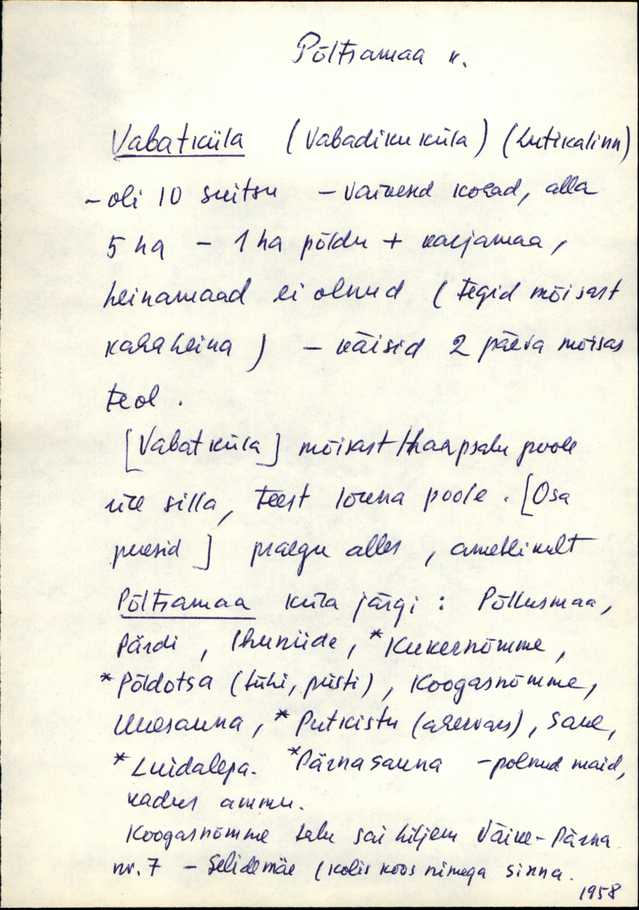 Põltsamaa k.
Vabatküla (Vabadiku küla) (Lutikalinn)
- oli 10 suitsu - väikesed kohad, alla
5 ha - 1 ha põldu + karjamaa,
heinamaad ei olnud (tegid mõisast
kasaheina) - käisid 2 päeva mõisas
teol.
[Vabatküla] mõisast Haapsalu poole
üle silla, teest lõuna poole. [Osa
peresid] praegu alles, ametlikult
Põltsamaa küla järgi: Põllusmaa,
Pärdi, Ihuniide, *Kukernõmme,
*Põldotsa (tühi, püsti), Koogasnõmme,
Uuesauna, *Putkistu (ahervars), Saue,
*Luidalepa. *Pärnasauna - polnud maid,
kadus ammu.
Koogasnõmme talu sai hiljem Väike-Pärna
nr. 7 - Selidemäe (kolis koos nimega sinna.
1958